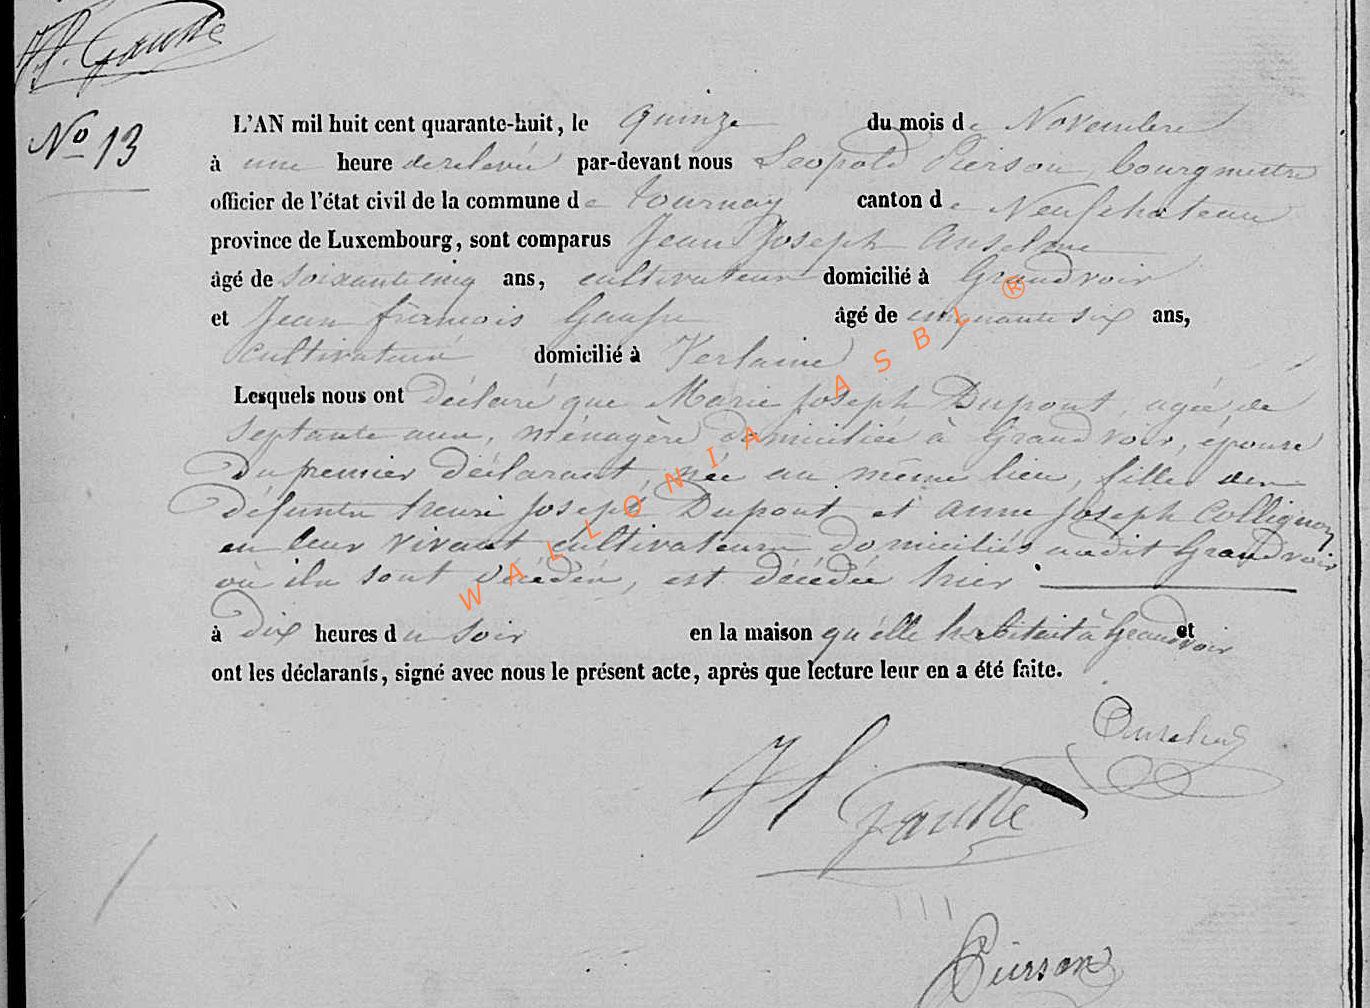 J. f. Gausse
No 13
L'AN mil huit cent quarante-huit, le quinze du mois de Novembre
à une heure de relevée par-devant nous Leopold Pierson, bourgmestre
officier de l'état civil de la commune de Tournay canton de Neufchateau
province de Luxembourg, sont comparus Jean Joseph Anselme
âgé de soixante cinq ans, cultivateur domicilié à Grandvoir
et Jean francois Gausse âgé de cinquante six ans,
cultivateur domicilié à Verlaine
Lesquels nous ont déclaré que Marie Joseph Dupont, agée de
septante ans, ménagère domiciliée à Grandvoir, épouse
du premier déclarant, née au même lieu, fille des
défunts henri Joseph Dupont et anne Joseph Collignon
en leur vivant cultivateurs domiciliés audit Grandvoir
où ils sont décédés, est décédée hier
à dix heures du soir en la maison qu'elle habitait à Grandvoir et
ont les déclarants, signé avec nous le présent acte, après que lecture leur en a été faite.
J f Gausse
Pierson
WALLONIA ASBL ®